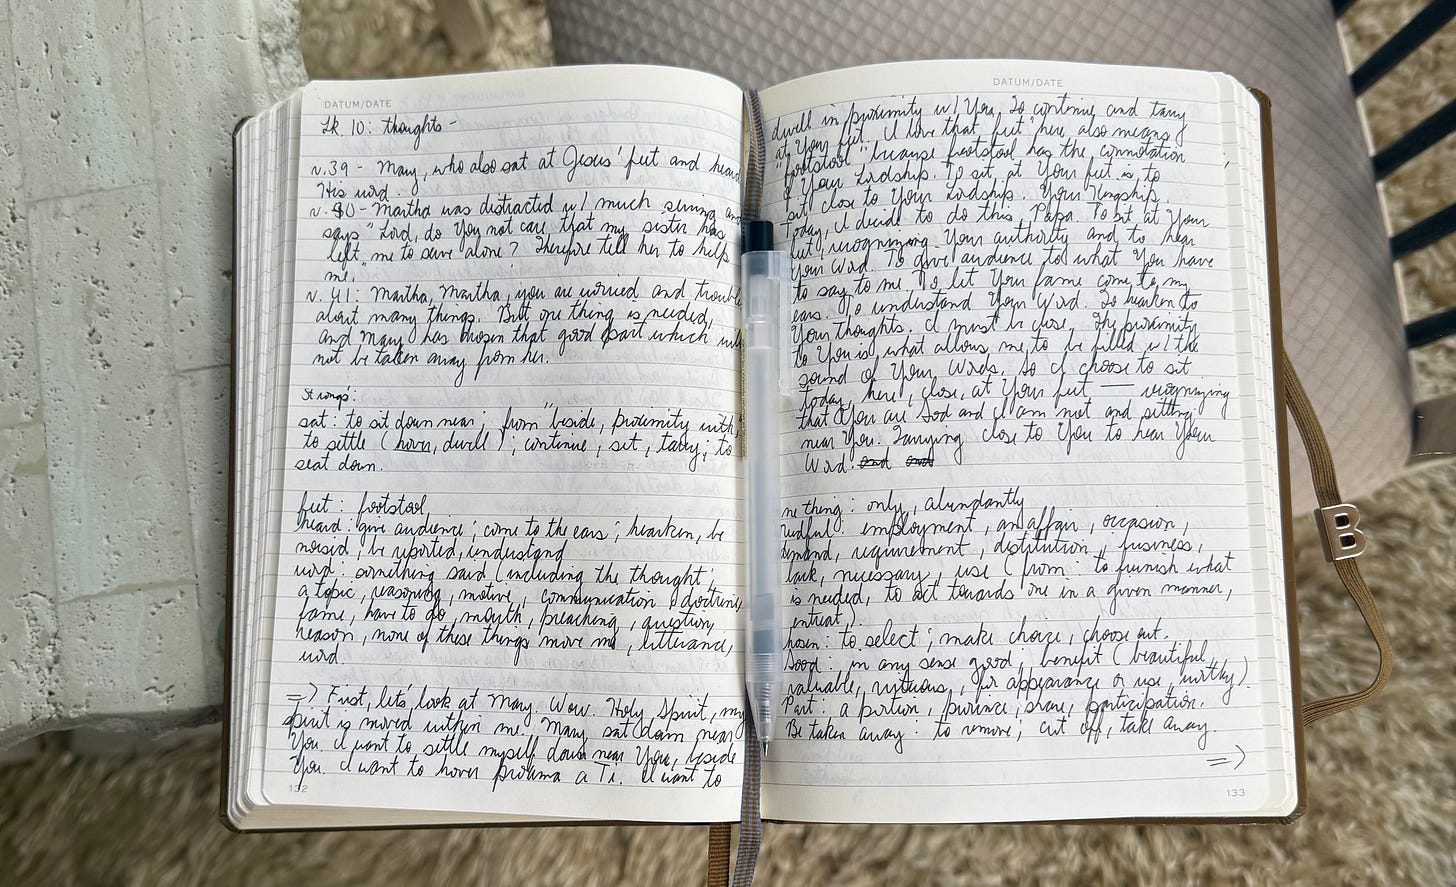 DATUM/DATE
Lk. 10: thoughts -
v.39 - Mary, who also sat at Jesus' feet and heard
His word.
v. 40 - Martha was distracted w/ much serving and
says "Lord, do You not care that my sister has
left me to serve alone? Therefore tell her to help
me."
v. 41: Martha, Martha, you are worried and troubl
about many things. But one thing is needed,
and Mary has chosen that good part which will
not be taken away from her.
Strong's:
sat: to sit down near; from "beside, proximity with,"
to settle (hover, dwell); continue, sit, tarry; to
seat down.
feet: footstool,
heard: give audience; come to the ears; hearken, be
noised, be reported, understand
word: something said (including the thought;
a topic, reasoning, motive, communication, doctrine,
fame, have to do, mouth, preaching, question,
reason, none of these things move me, utterance,
word.
=> First, let's look at Mary. Wow. Holy Spirit, my
spirit is moved within me. Mary sat down near
You. I want to settle myself down near You, beside
You. I want to hover a Ti. I want to
132
DATUM/DATE
dwell in proximity w/ You. To continue and tarry
at Your feet. I love that "feet" here also means
"footstool" because footstool has the connotation
of Your Lordship. To sit at Your feet is to
sit close to Your Lordship. Your Kingship.
Today, I decide to do this, Papa. To sit at Your
feet, recognizing Your authority and to hear
Your Word. To give audience to what You have
to say to me. To let Your fame come to my
ears. To understand Your Word. To hearken to
Your thoughts. I must be close. The proximity
to You is what allows me to be filled w/ the
sound of Your Words. So I choose to sit
today, here, close, at Your feet — recognizing
that You are God and I am not and sitting
near You. Tarrying close to You to hear Your
Word.
ne thing: only, abundantly
needful: employment, an affair, occasion,
demand, requirement, destitution, business,
lack, necessary, use (from: to furnish what
is needed, to act towards one in a given manner,
entreat).
hosen: to select; make choice, choose out.
Good: in any sense good, benefit (beautiful,
valuable, virtuous, for appearance or use, worthy).
Part: a portion, province, share, participation.
Be taken away: to remove; cut off, take away.
=>
133
B